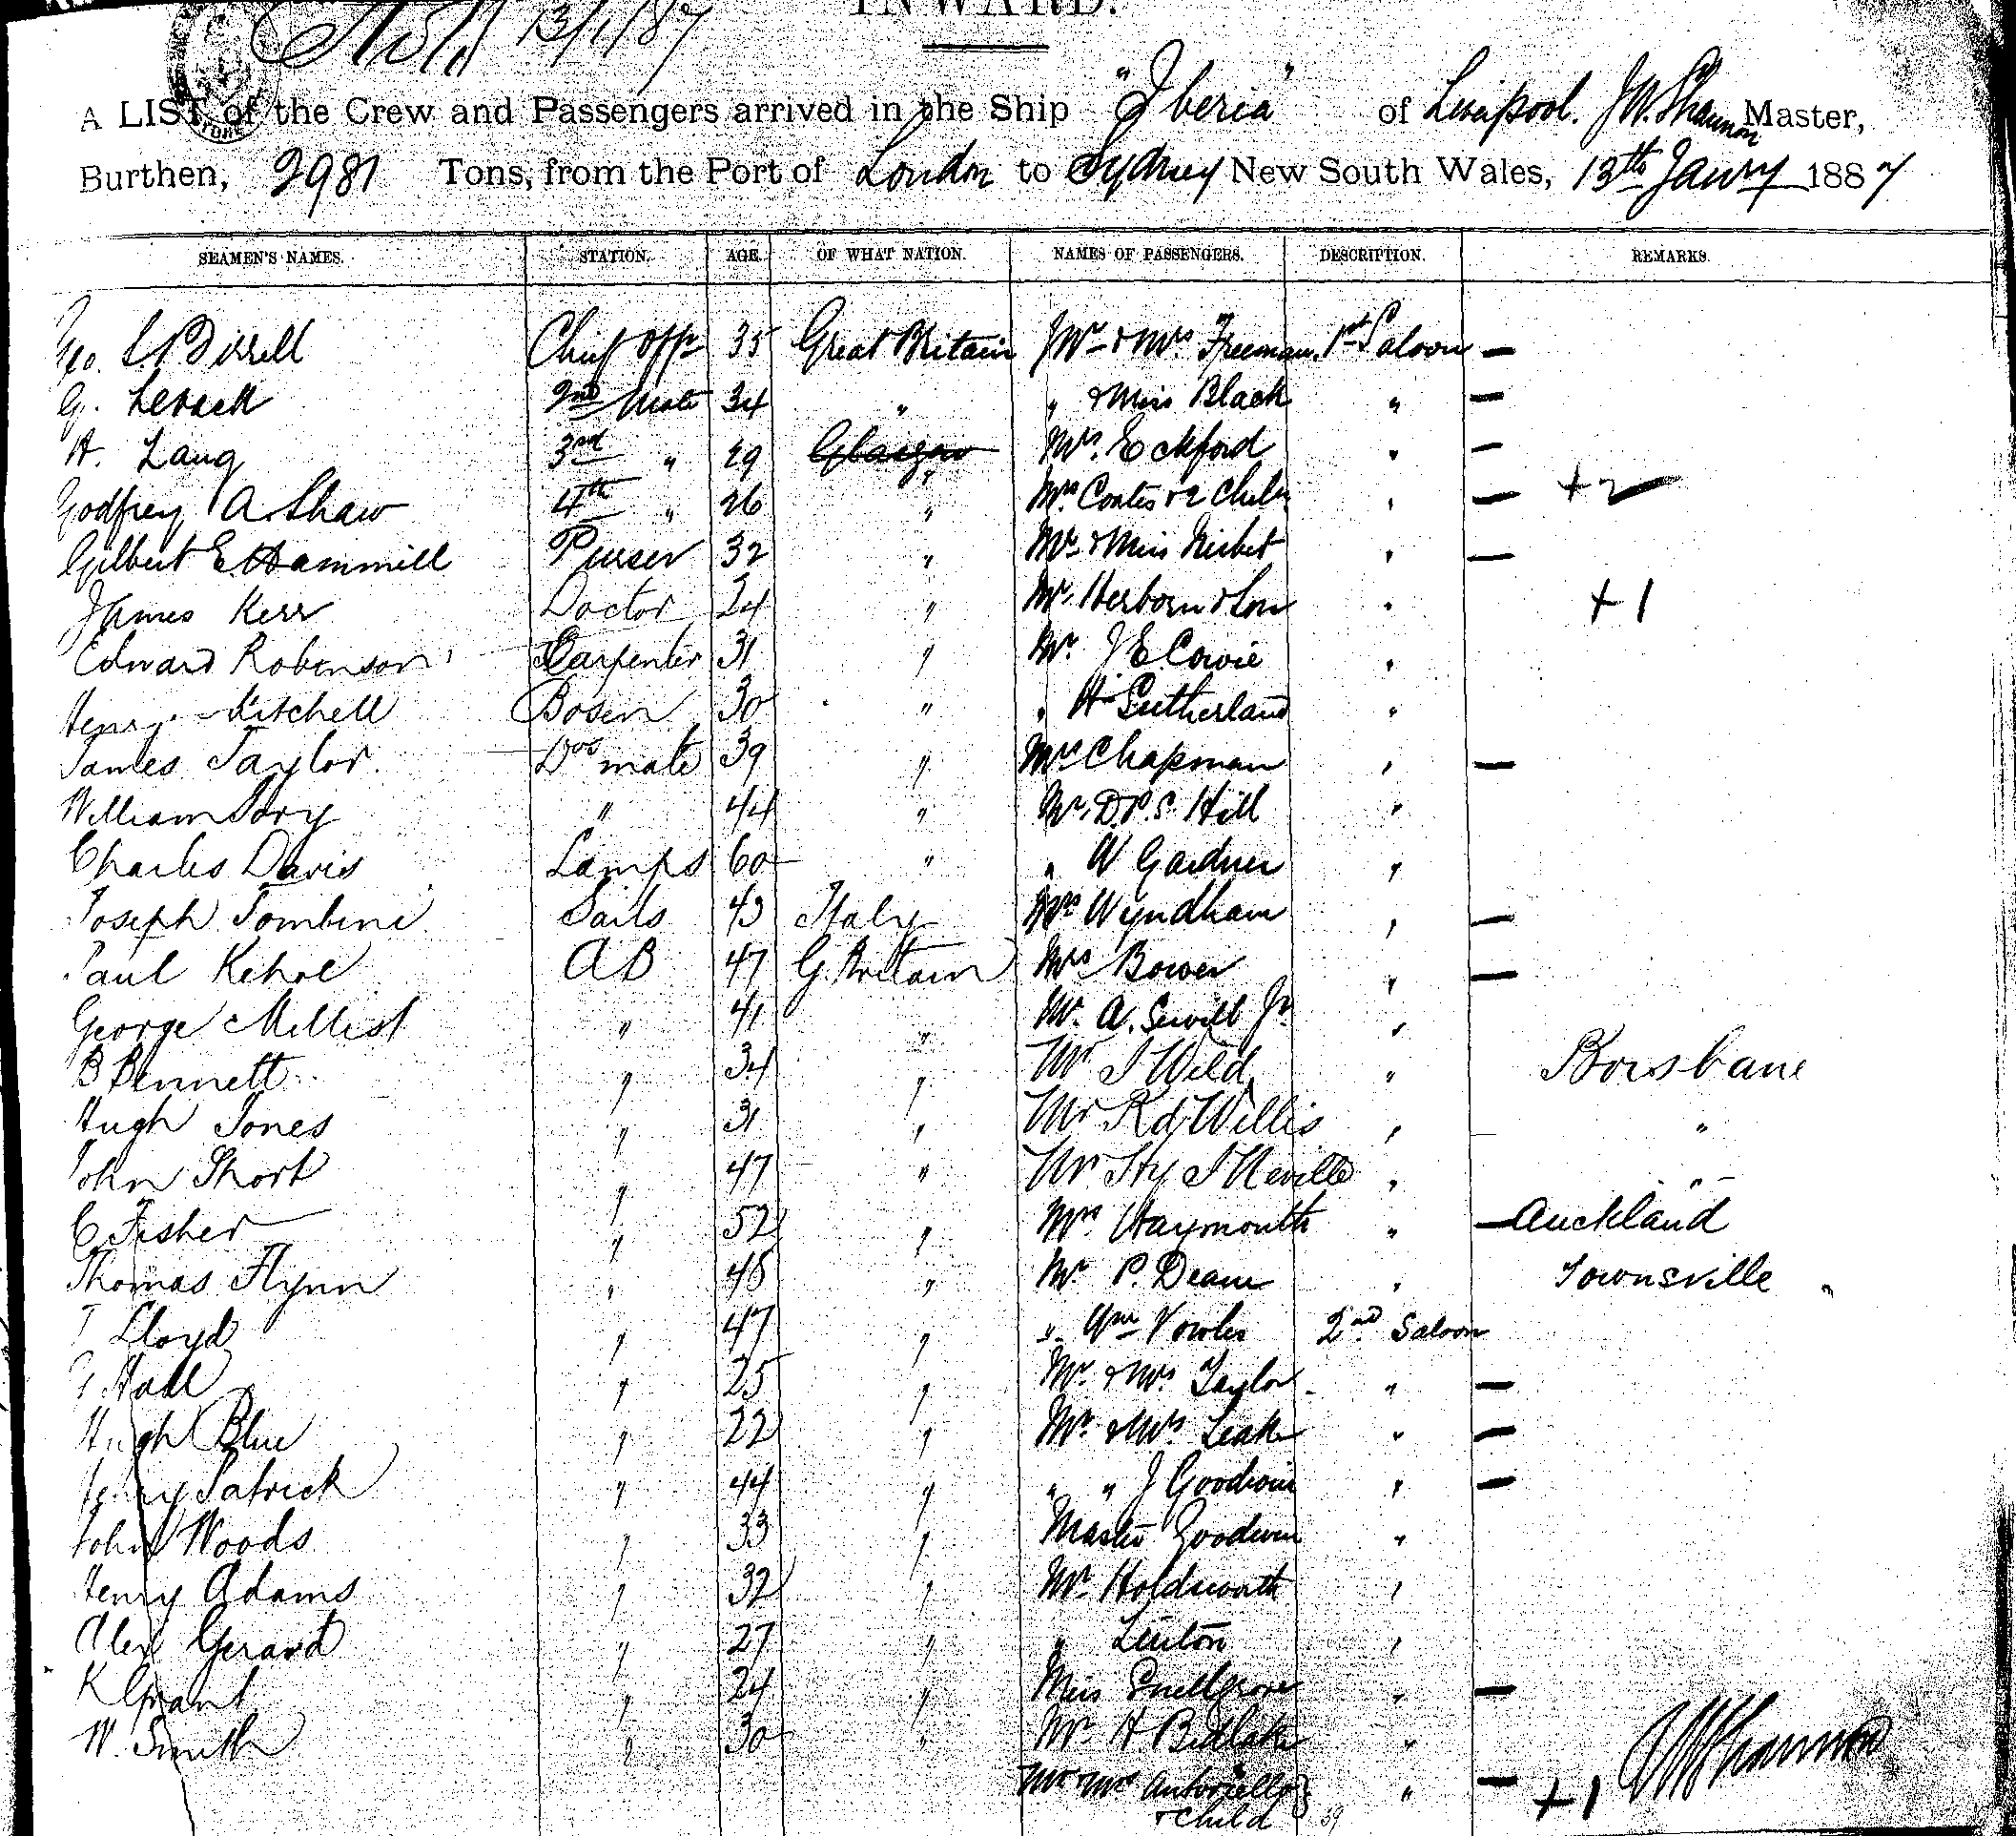 INWARD.
13/1/87
A LIST of the Crew and Passengers arrived in the Ship "Iberia" of Liverpool. J W. Shannon Master,
Burthen, 2981 Tons, from the Port of London to Sydney New South Wales, 13th Janry 1887
SEAMEN'S NAMES. STATION. AGE. OF WHAT NATION. NAMES OF PASSENGERS. DESCRIPTION. REMARKS.
Geo. Birrell Chief Offr 35 Great Britain Mr & Mrs Freeman. 1st Saloon —
G. Levack 2nd Mate 34 " " & Miss Black " —
A. Lang 3rd " 29 " Mrs. Eckford " —
Godfrey A. Shaw 4th " 26 " Mrs Coates & 2 Chiln " — +2
Gilbert E. Hammill Purser 32 " Mr & Miss Nisbet " —
James Kerr Doctor 24 " Mr. Herborn & Son " +1
Edward Robinson Carpenter 31 " Mr. J E. Cowie "
Henry Mitchell Bosen 30 " " H Sutherland "
James Taylor Dos mate 39 " Mrs Chapman " —
William " 44 " Mr. D.P.S. Hill "
Charles Davis Lamps 60 " " W Gardner "
Joseph Tombini Sails 43 Italy Mrs Wyndham " —
Paul Kehoe AB 47 G. Britain Mrs Bower " —
George Millist " 41 " Mr. A. Sewill Jr. "
B Bennett " 34 " Mr J Wild " Brisbane
Hugh Jones " 31 " Mr Rd Willis " "
John Short " 47 " Mr Hy J Neville " "
C Fisher 52 " Mrs Haymouth " — Auckland
Thomas Flynn " 48 " Mr P. Deane " Townsville "
Lloyd " 47 " " Wm Vowles 2nd Saloon
Hall " 25 " Mr. & Mrs. Taylor " —
Hugh Blue " 22 " Mr. & Mrs. Leake " —
Henry Patrick " 44 " " " J Goodwin " —
John Woods " 33 " Master Goodwin "
Henry Adams " 32 " Mr. Holdsworth "
Alex Gerard " 27 " " Linton "
K Grant " 24 " Miss Snellgrove " —
W. Smith " 30 " Mr. H. Bidlake "
Mr & Mrs Antoniello } " — +1 JW Shannon
& Child